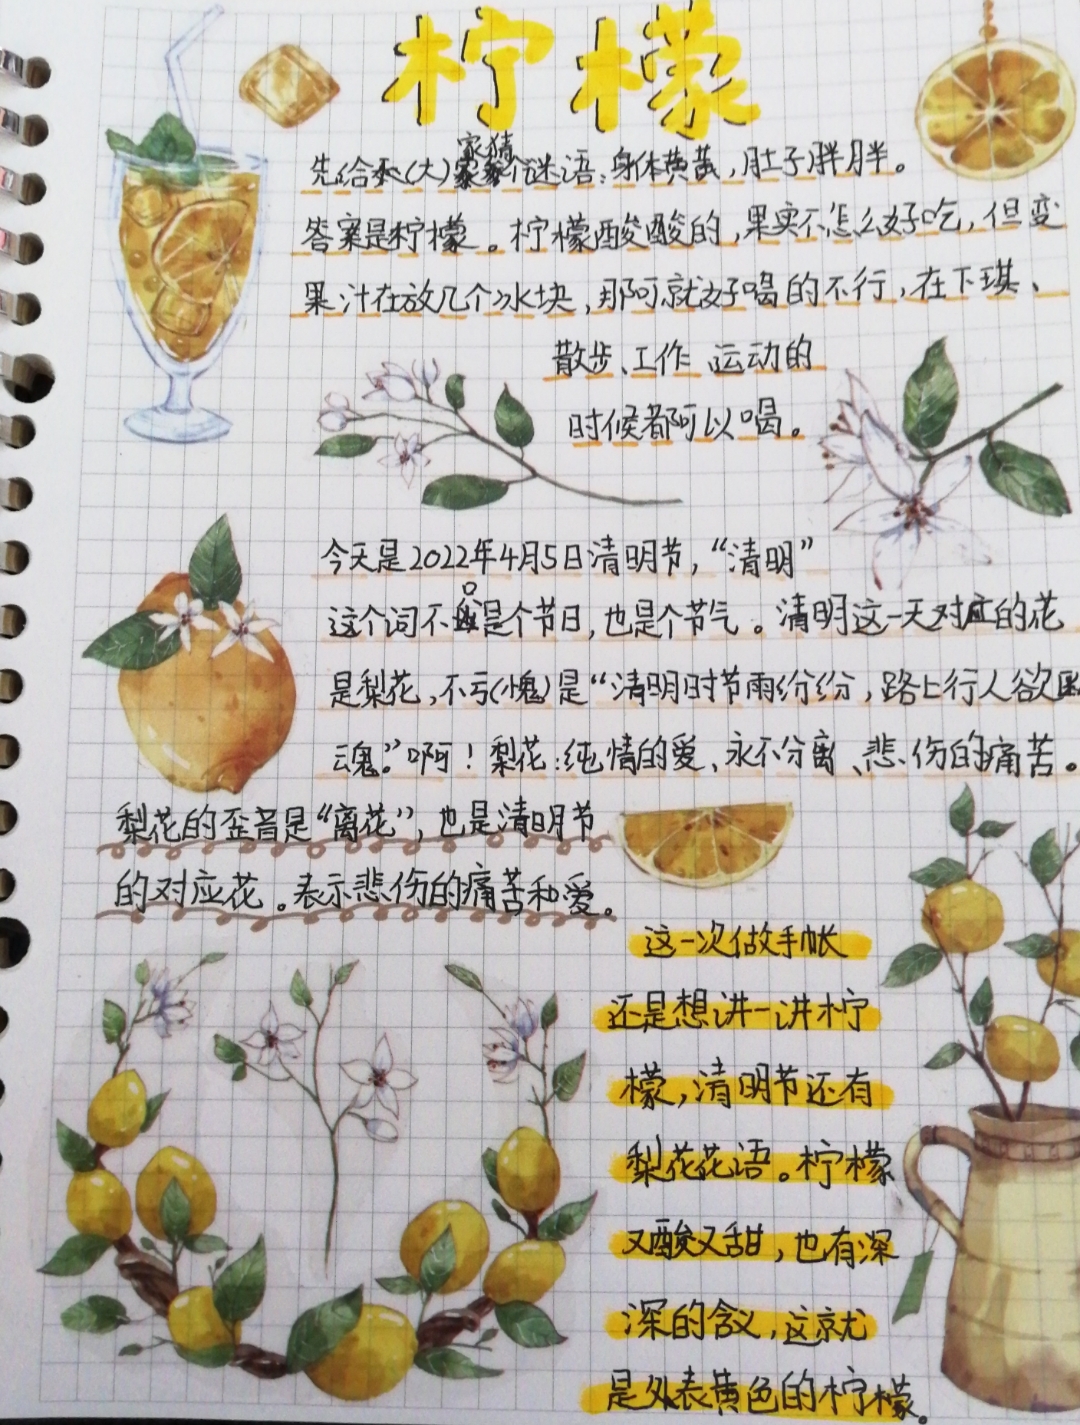 柠檬
先给(大)家猜个谜语：身体黄黄，肚子胖胖。
答案是柠檬。柠檬酸酸的，果实不怎么好吃，但变
果汁在放几个冰块，那可就好喝的不行，在下琪、
散步、工作 运动的
时候都可以喝。
今天是2022年4月5日清明节，“清明”
这个词不只是个节日，也是个节气。清明这一天对应的花
是梨花，不亏(愧)是“清明时节雨纷纷，路上行人欲断
魂。”啊！梨花：纯情的爱、永不分离、悲伤的痛苦。
梨花的歪音是“离花”，也是清明节
的对应花。表示悲伤的痛苦和爱。
这一次做手帐
还是想讲一讲柠
檬，清明节还有
梨花花语。柠檬
又酸又甜，也有深
深的含义，这就
是外表黄色的柠檬。